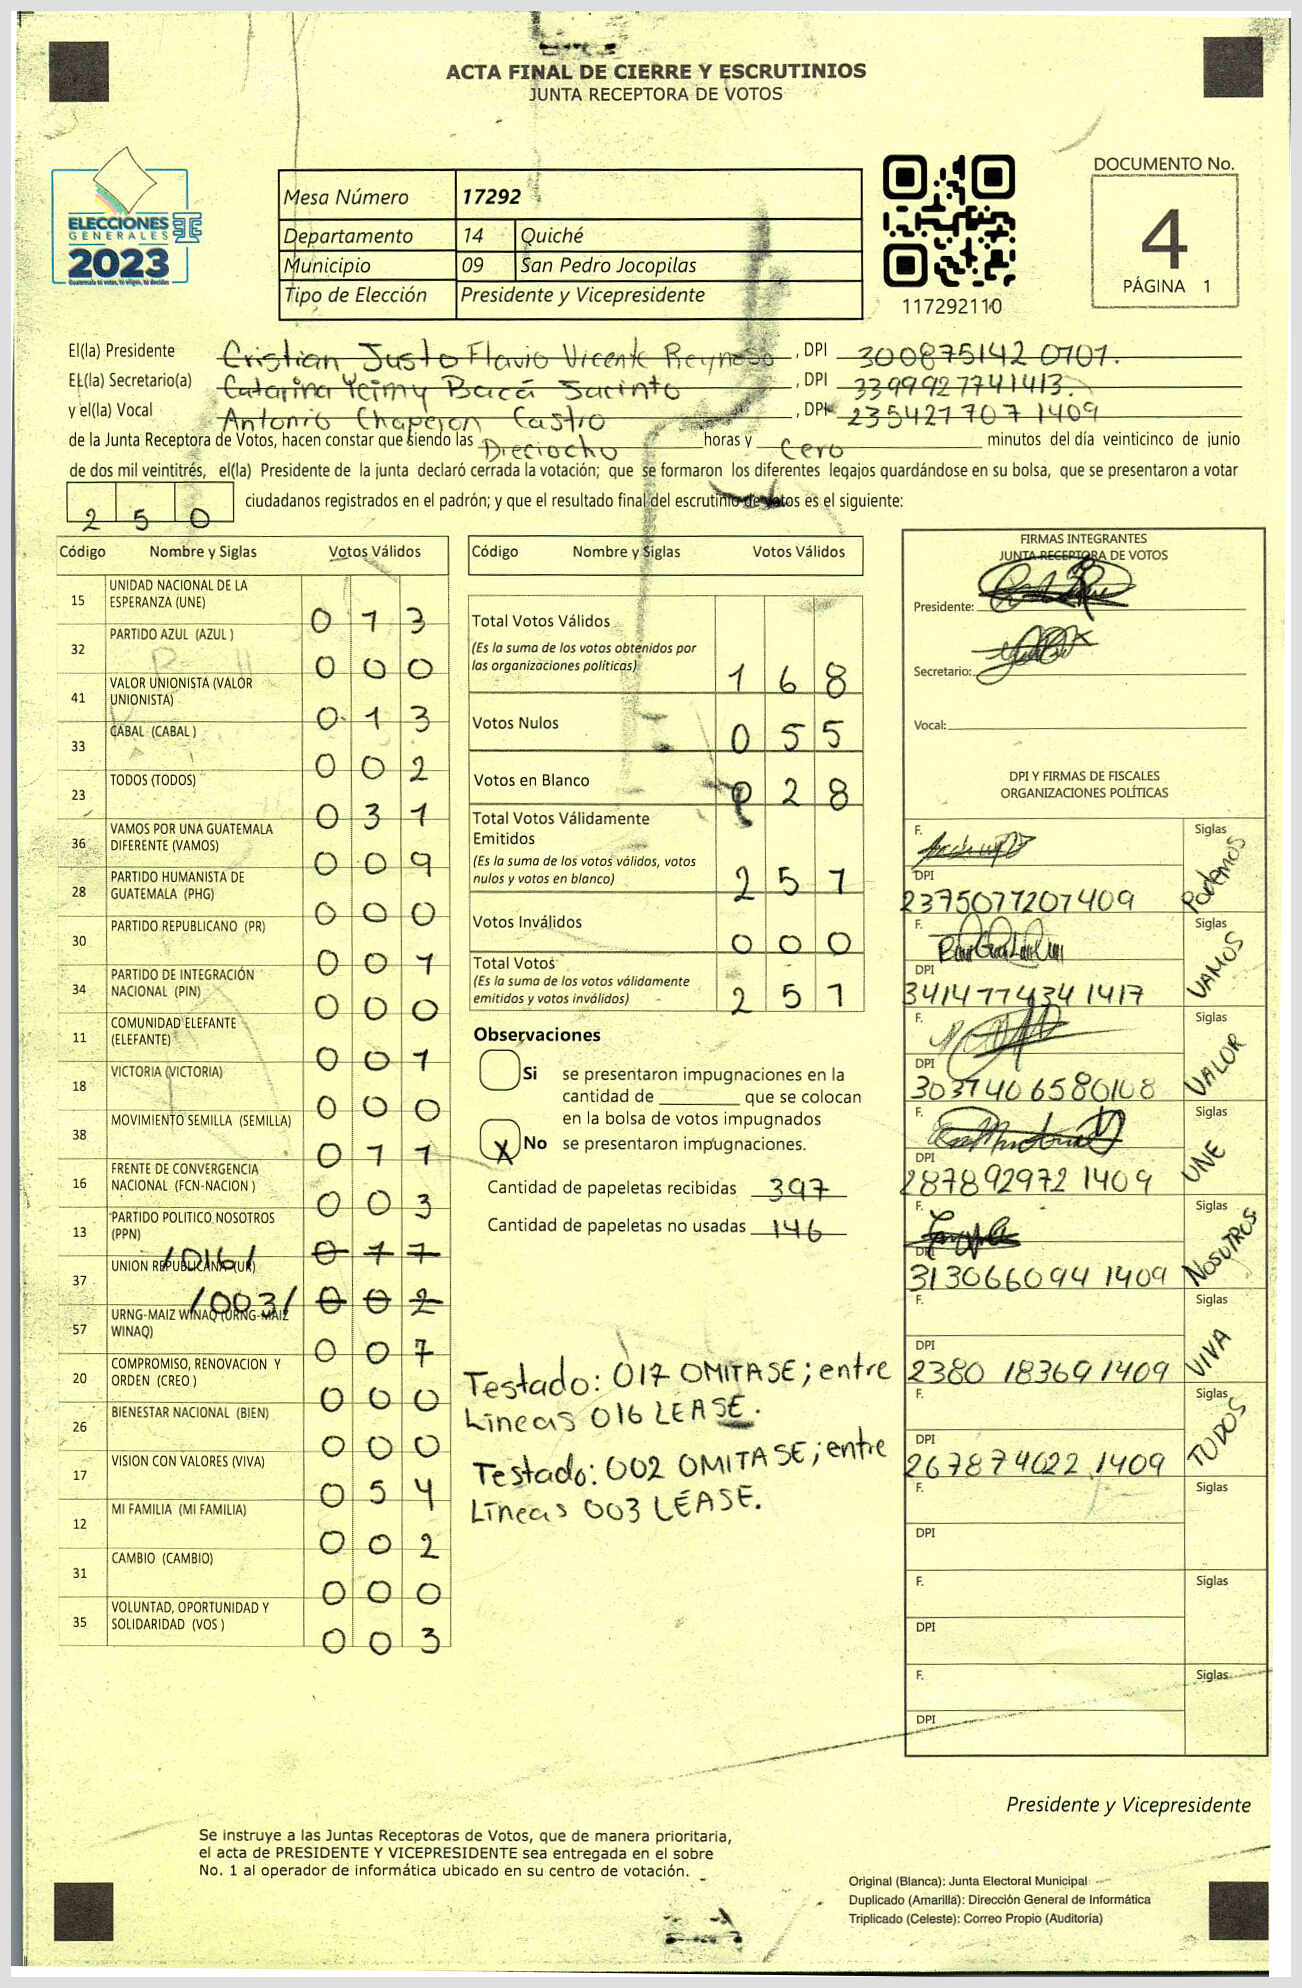 ACTA FINAL DE CIERRE Y ESCRUTINIOS
JUNTA RECEPTORA DE VOTOS
ELECCIONES
GENERALES
2023
Mesa Número 17292
Departamento 14 Quiché
Municipio 09 San Pedro Jocopilas
Tipo de Elección Presidente y Vicepresidente
117292110
DOCUMENTO No.
4
PÁGINA 1
El(la) Presidente Cristian Justo Flavio Vicente Reynoso, DPI 300875142 0101.
EL(la) Secretario(a) Catarina Yeimy Bacá Jacinto, DPI 3399927741413.
y el(la) Vocal Antonio Chaperon Castro, DPI 235421707 1409
de la Junta Receptora de Votos, hacen constar que siendo las Dieciocho horas y Cero minutos del día veinticinco de junio
de dos mil veintitrés, el(la) Presidente de la junta declaró cerrada la votación; que se formaron los diferentes legajos quardándose en su bolsa, que se presentaron a votar
250 ciudadanos registrados en el padrón; y que el resultado final del escrutinio de votos es el siguiente:
Código Nombre y Siglas Votos Válidos
15 UNIDAD NACIONAL DE LA ESPERANZA (UNE) 013
32 PARTIDO AZUL (AZUL ) 000
41 VALOR UNIONISTA (VALOR UNIONISTA) 013
33 CABAL (CABAL ) 002
23 TODOS (TODOS) 031
36 VAMOS POR UNA GUATEMALA DIFERENTE (VAMOS) 009
28 PARTIDO HUMANISTA DE GUATEMALA (PHG) 000
30 PARTIDO REPUBLICANO (PR) 001
34 PARTIDO DE INTEGRACIÓN NACIONAL (PIN) 000
11 COMUNIDAD ELEFANTE (ELEFANTE) 001
18 VICTORIA (VICTORIA) 000
38 MOVIMIENTO SEMILLA (SEMILLA) 011
16 FRENTE DE CONVERGENCIA NACIONAL (FCN-NACION ) 003
13 PARTIDO POLITICO NOSOTROS (PPN) /016/ 017
37 UNION REPUBLICANA (UR) /003/ 002
57 URNG-MAIZ WINAQ (URNG-MAIZ WINAQ) 007
20 COMPROMISO, RENOVACION Y ORDEN (CREO ) 000
26 BIENESTAR NACIONAL (BIEN) 000
17 VISION CON VALORES (VIVA) 054
12 MI FAMILIA (MI FAMILIA) 002
31 CAMBIO (CAMBIO) 000
35 VOLUNTAD, OPORTUNIDAD Y SOLIDARIDAD (VOS ) 003
Código Nombre y Siglas Votos Válidos
Total Votos Válidos 168
(Es la suma de los votos obtenidos por
las organizaciones políticas)
Votos Nulos 055
Votos en Blanco 028
Total Votos Válidamente
Emitidos 251
(Es la suma de los votos válidos, votos
nulos y votos en blanco)
Votos Inválidos 000
Total Votos 251
(Es la suma de los votos válidamente
emitidos y votos inválidos)
Observaciones
Si se presentaron impugnaciones en la
cantidad de ________ que se colocan
en la bolsa de votos impugnados
X No se presentaron impugnaciones.
Cantidad de papeletas recibidas 397
Cantidad de papeletas no usadas 146
Testado: 017 OMITASE; entre
Líneas 016 LEASE.
Testado: 002 OMITASE; entre
Líneas 003 LÉASE.
FIRMAS INTEGRANTES
JUNTA RECEPTORA DE VOTOS
Presidente:
Secretario:
Vocal:
DPI Y FIRMAS DE FISCALES
ORGANIZACIONES POLÍTICAS
F. Siglas
DPI 2375077207409 Podemos
F. Siglas
DPI 3414774341417 VAMOS
F. Siglas
DPI 3037406580108 VALOR
F. Siglas
DPI 287892972 1409 UNE
F. Siglas
DPI 313066094 1409 NOSOTROS
F. Siglas
DPI 2380 18369 1409 VIVA
F. Siglas
DPI 267874022 1409 TODOS
F. Siglas
DPI
F. Siglas
DPI
F. Siglas
DPI
Presidente y Vicepresidente
Se instruye a las Juntas Receptoras de Votos, que de manera prioritaria,
el acta de PRESIDENTE Y VICEPRESIDENTE sea entregada en el sobre
No. 1 al operador de informática ubicado en su centro de votación.
Original (Blanca): Junta Electoral Municipal
Duplicado (Amarilla): Dirección General de Informática
Triplicado (Celeste): Correo Propio (Auditoría)